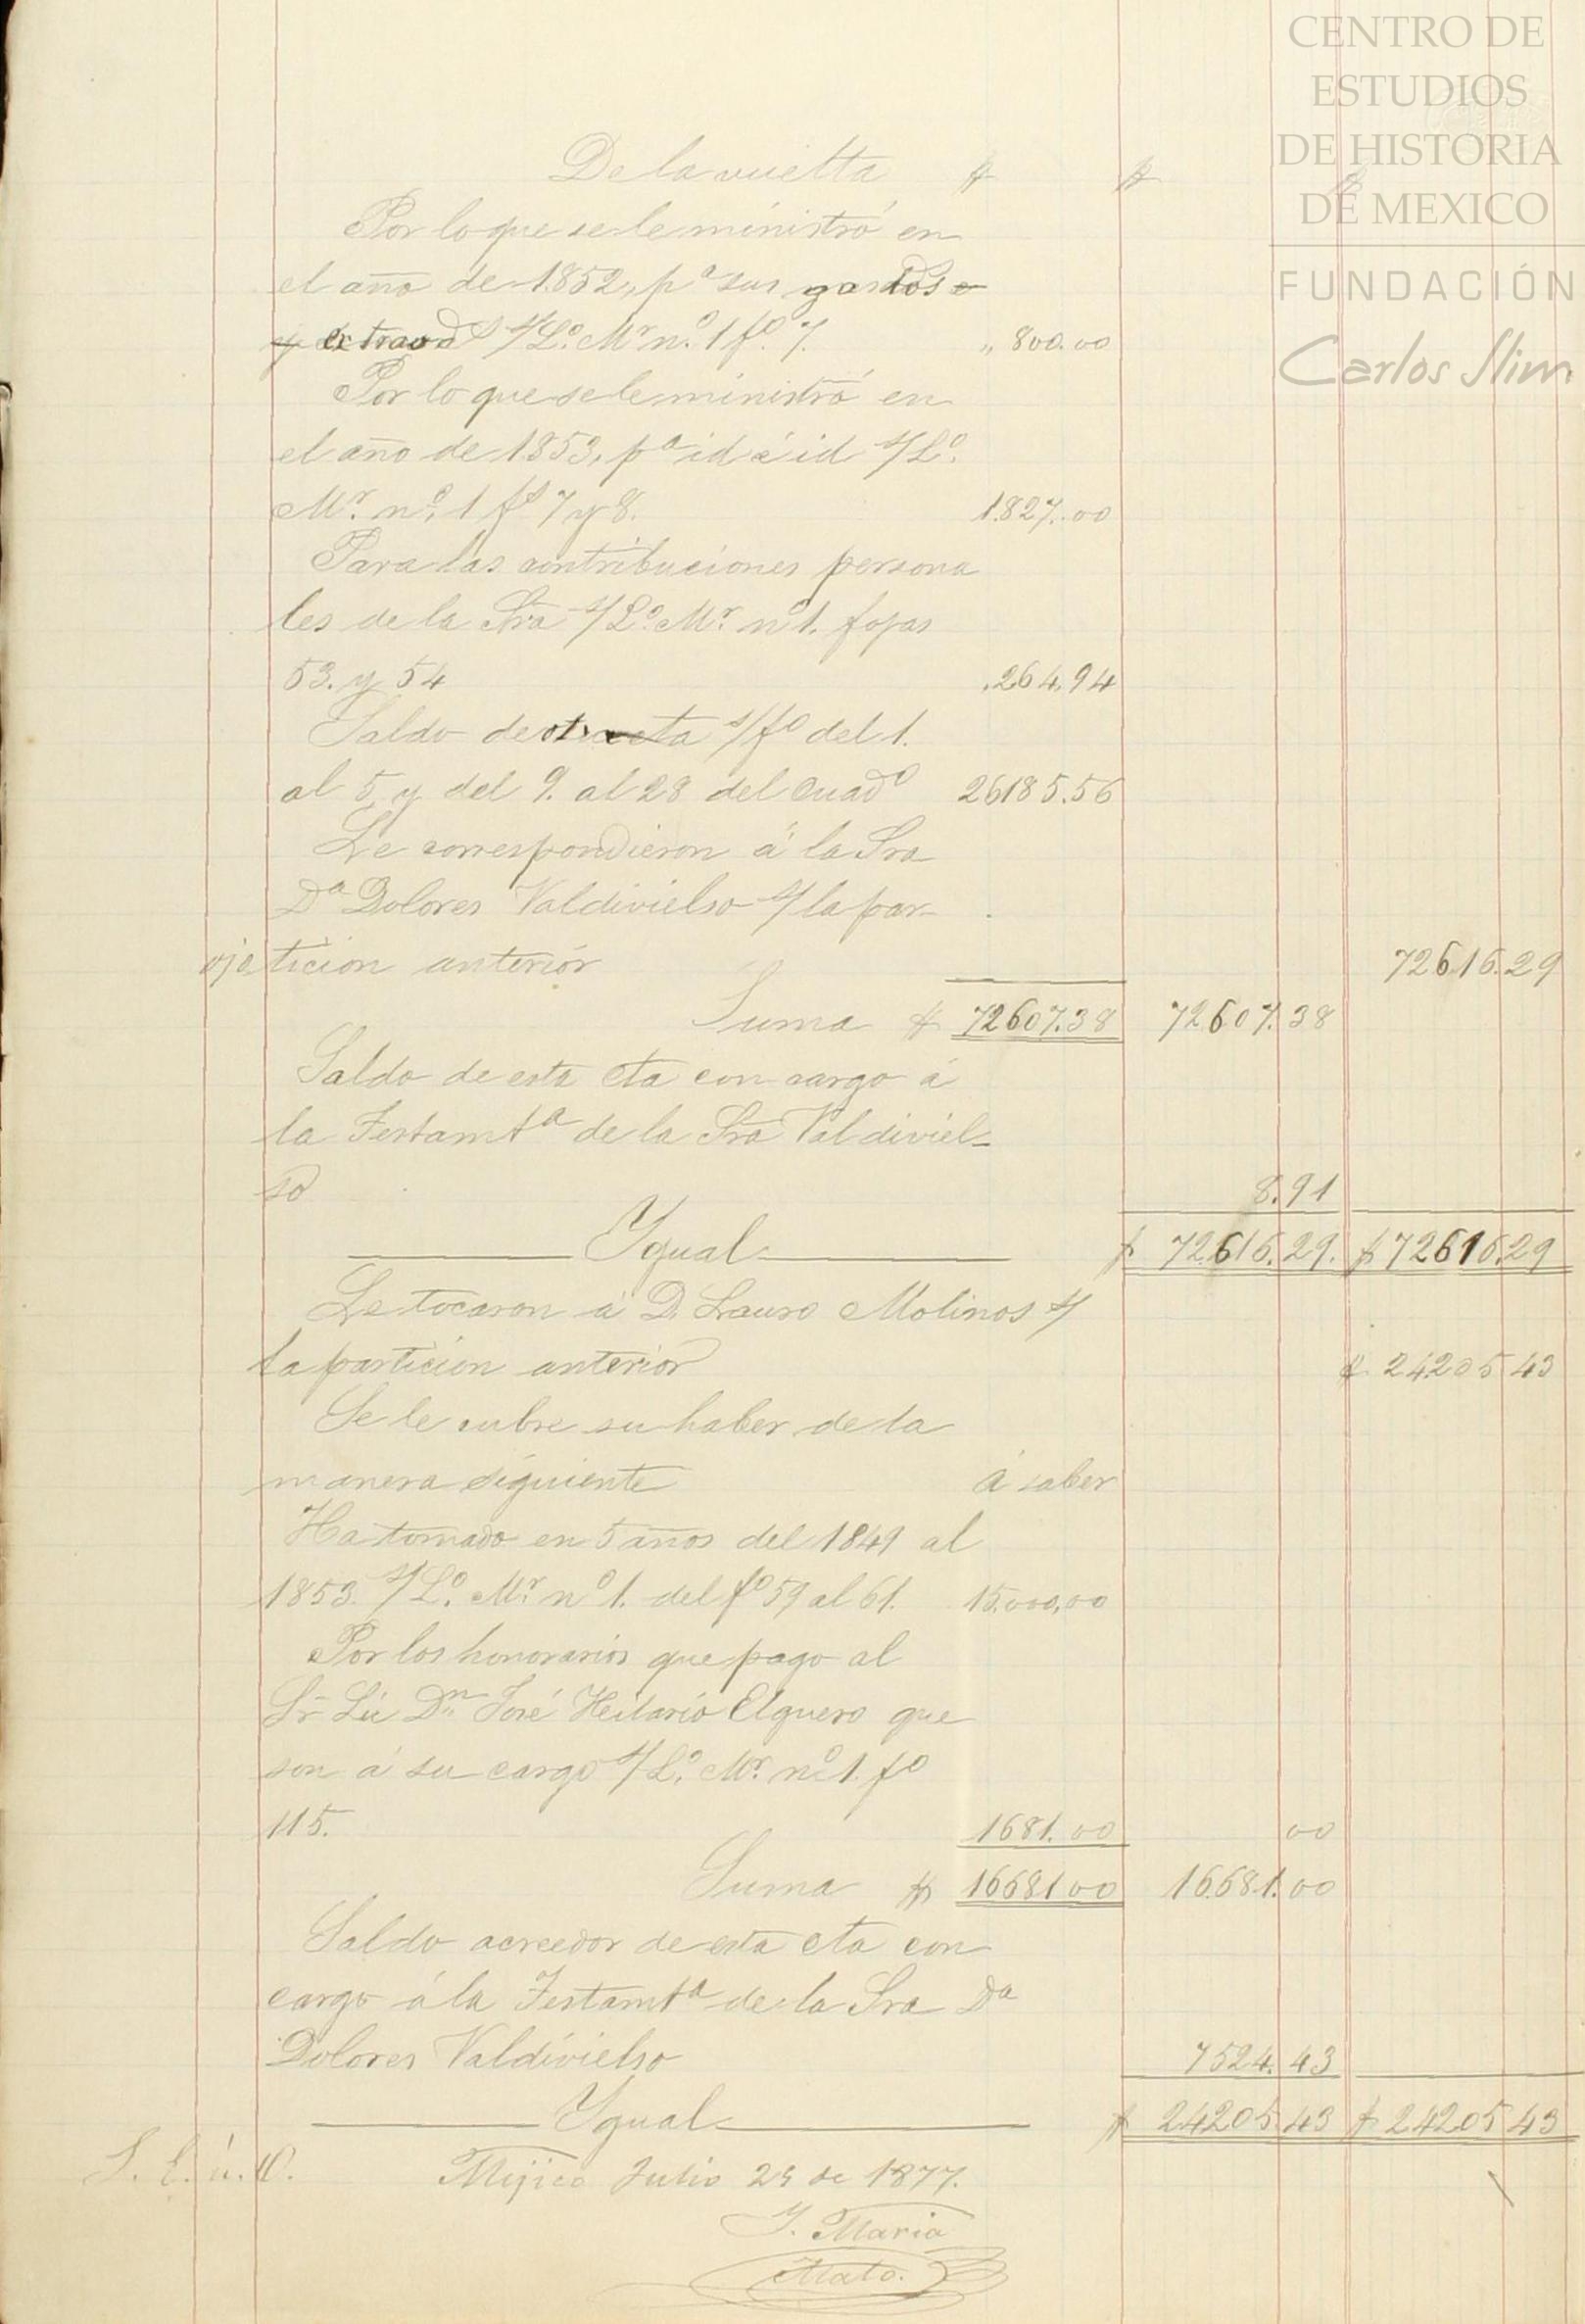 CENTRO DE
ESTUDIOS
DE HISTORIA
DE MEXICO
FUNDACIÓN
Carlos Slim
De la vuelta $ $ $
Por lo que se le ministró en
el año de 1852, pª sus gastos
extraordˢ s/Lº. Mʳ nº. 1 fº. 7. „ 800.00
Por lo que se le ministró en
el año de 1853, pª id é id s/Lº.
Mʳ. nº. 1 fˢ 7 y 8. 1.827.00
Para las contribuciones persona
les de la Sra s/Lº. Mʳ. nº 1. fojas
53. y 54 „264.94
Saldo de cta s/fº del 1.
al 5 y del 9. al 28 del Cuadº 26185.56
Le correspondieron á la Sra
Dª Dolores Valdivielso s/la par-
ojo tición anterior 72616.29
Suma $ 72607.38 72607.38
Saldo de esta cta con cargo á
la Testamtª de la Sra Valdiviel-
so 8.91
Ygual $ 72616.29. $ 72616.29
Le tocaron á D. Lauro Molinos s/
la partición anterior $ 24205 43
Se le cubre su haber de la
manera siguiente á saber
Ha tomado en 5 años del 1849 al
1853. s/Lº. Mʳ. nº 1. del fº 59 al 61. 15.000,00
Por los honorarios que pago al
Sr Lic Dⁿ José Heilario Elguero que
son á su cargo s/Lº. Mʳ. nº 1. fº
115. 1681.00 00
Suma $ 16681 00 16.681.00
Saldo acreedor de esta cta con
cargo á la Testamtª de la Sra Dª
Dolores Valdivielso 7524.43
Ygual $ 24205 43 $ 24205 43
S. E. ú. O. Méjico Julio 25 de 1877.
Y. Maria
Mato.